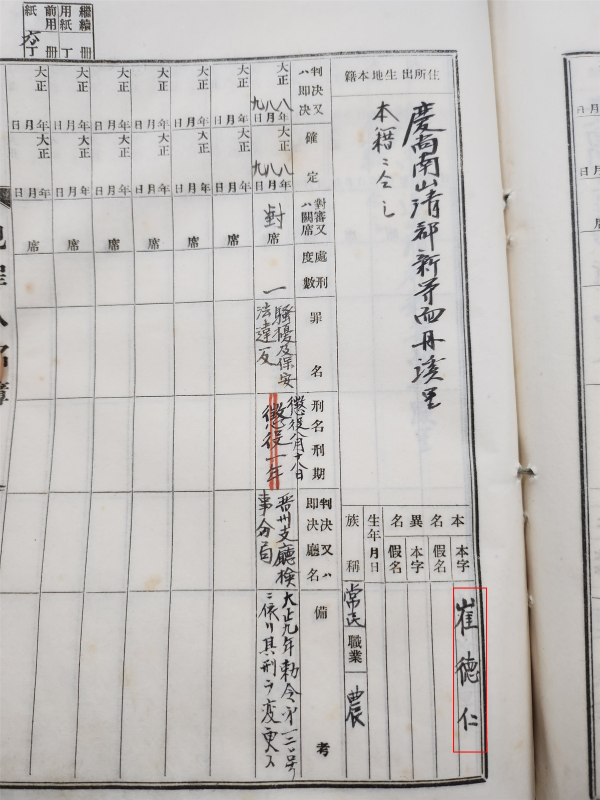 本籍地生出所住
慶尚南山清郡新等面丹溪里
本籍ニ仝シ
本名
異名
生年月日
族稱
本字
假名
本字
假名
崔德仁
常民
職業
農
判决又ハ即决
確定
對審又ハ闕席
處刑度數
罪名
刑名刑期
判决又ハ即决廳名
備考
大正八年八月九日
大正八年八月九日
對席
一
騷擾及保安
法違反
懲役八月十八日
懲役一年
晋州支廳檢
事分局
大正九年勅令第一二〇号
ニ依リ其刑ヲ変更ス
大正 年月日
大正 年月日
席
大正 年月日
大正 年月日
席
大正 年月日
大正 年月日
席
大正 年月日
大正 年月日
席
大正 年月日
大正 年月日
席
大正 年月日
大正 年月日
席
繼續用紙
冊丁
前用紙
冊丁